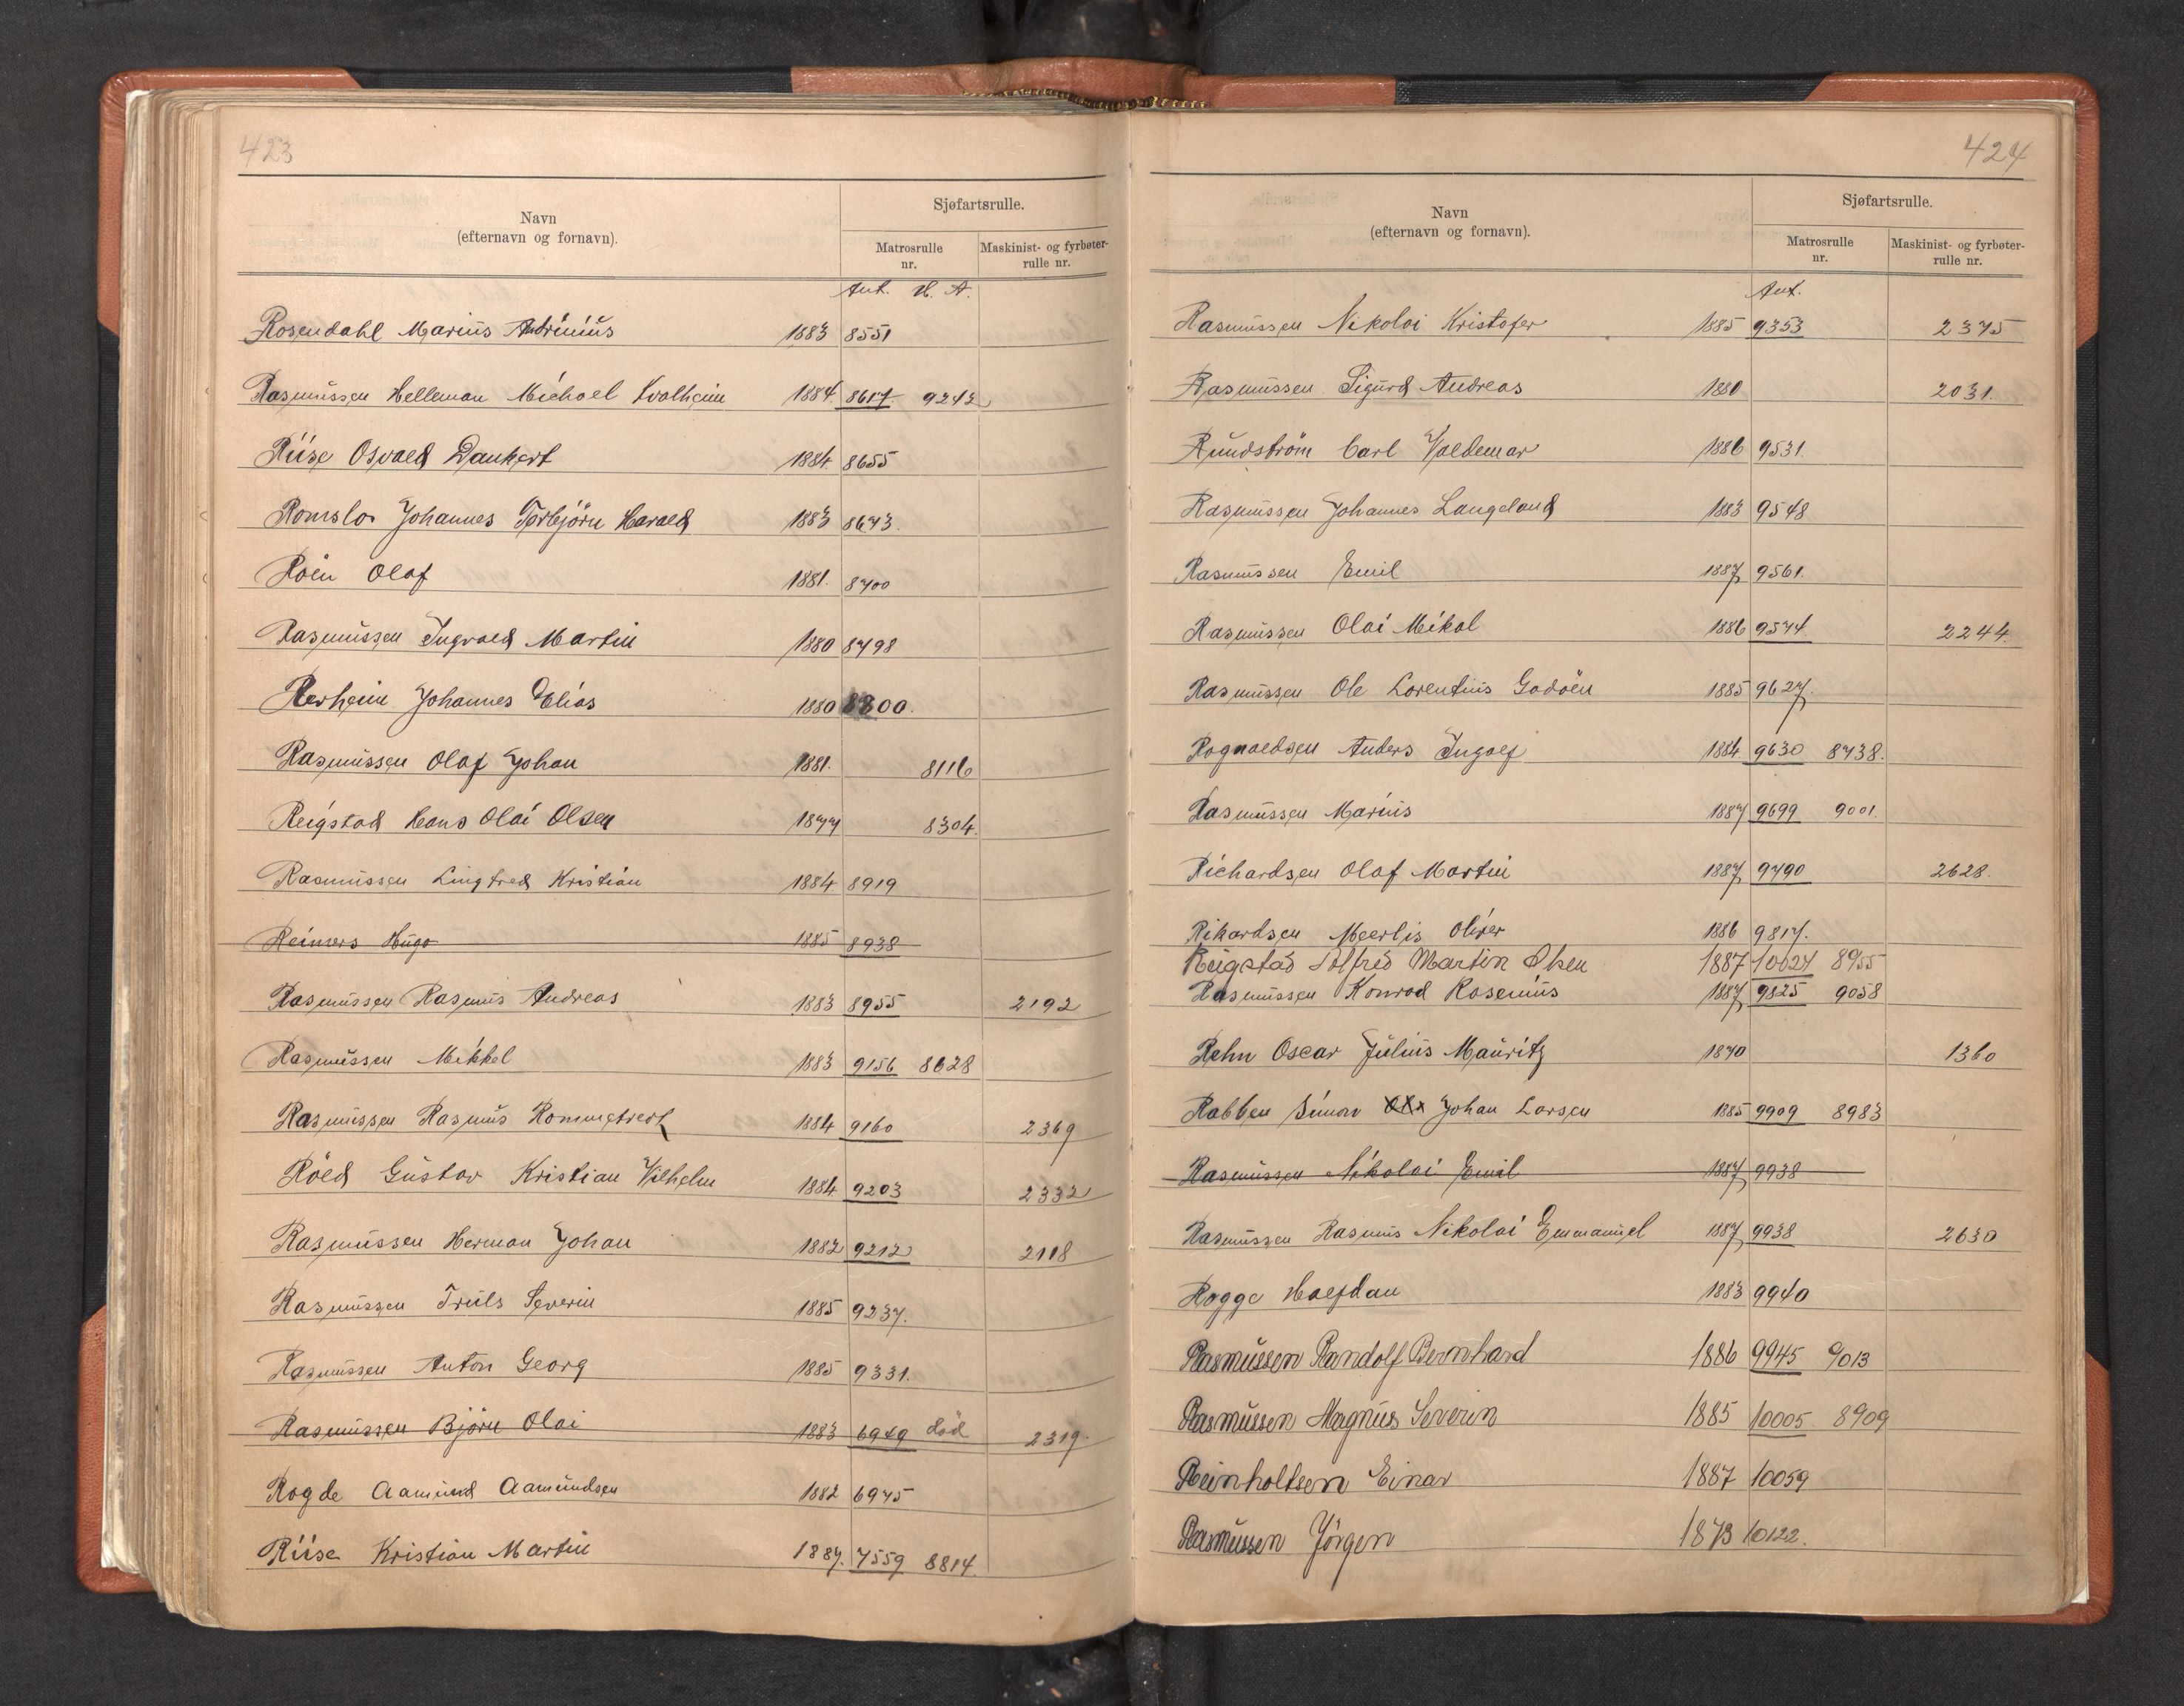 423
Navn
(efternavn og fornavn).
Sjøfartsrulle.
Matrosrulle
nr.
Maskinist- og fyrbøter-
rulle nr.
Ant. H. A.
Rosendahl Marius Andrinius 1883 8551
Rasmussen Helleman Michael Kvalheim 1884. 8617. 9242
Riise Osvald Dankert 1884. 8655
Romslo Johannes Torbjörn Harald 1883 8673.
Roen Olaf 1881. 8700
Rasmussen Ingvald Martin 1880 8798
Rerheim Johannes Elias 1880 8800.
Rasmussen Olaf Johan 1881. 8116
Reigstad Hans Olai Olsen 1877 8304.
Rasmussen Lingfred Kristian 1884 8919
Reimers Hugo 1885 8938
Rasmussen Rasmus Andreas 1883 8955 2192
Rasmussen Mikkel 1883 9156 8628
Rasmussen Rasmus Rommetvedt 1884 9160 2369
Röed Gustav Kristian Vilhelm 1884 9203 2332
Rasmussen Herman Johan 1882 9212 2118
Rasmussen Truls Severin 1885 9237.
Rasmussen Anton Georg 1885 9331.
Rasmussen Björn Olai 1883 6949 död 2319.
Rogde Aamund Aamundsen 1882 6975
Riise Kristian Martin 1887. 7559 8814.
424
Navn
(efternavn og fornavn).
Sjøfartsrulle.
Matrosrulle
nr.
Maskinist- og fyrbøter-
rulle nr.
Ant.
Rasmussen Nikolai Kristofer 1885 9353 2375
Rasmussen Sigurd Andreas 1880 2031.
Rundström Carl Valdemar 1886 9531.
Rasmussen Johannes Langeland 1883 9548
Rasmussen Emil 1887 9561.
Rasmussen Olai Mikal 1886 9574 2244.
Rasmussen Ole Lorentius Godöen 1885 9627.
Rognaldsen Anders Ingolf 1884. 9630 8738.
Rasmussen Marius 1887 9699 9001.
Richardsen Olaf Martin 1887 9790 2628.
Rikardsen Meerlis Oliver 1886 9817.
Reigstad Solfred Martin Olsen 1887 10027 8955
Rasmussen Konrad Rasenius 1887 9825 9058
Rehn Oscar Julius Mauritz 1870 1360
Rabben Simon Johan Larsen 1885 9909 8983
Rasmussen Nikolai Emil 1887 9938
Rasmussen Rasmus Nikolai Emmanuel 1887 9938 2630
Rogge Halfdan 1883 9940
Rasmussen Randolf Bernhard 1886 9945 9013
Rasmussen Magnus Severin 1885 10005 8909
Reinholtsen Einar 1887 10059
Rasmussen Jörgen 1873 10122.